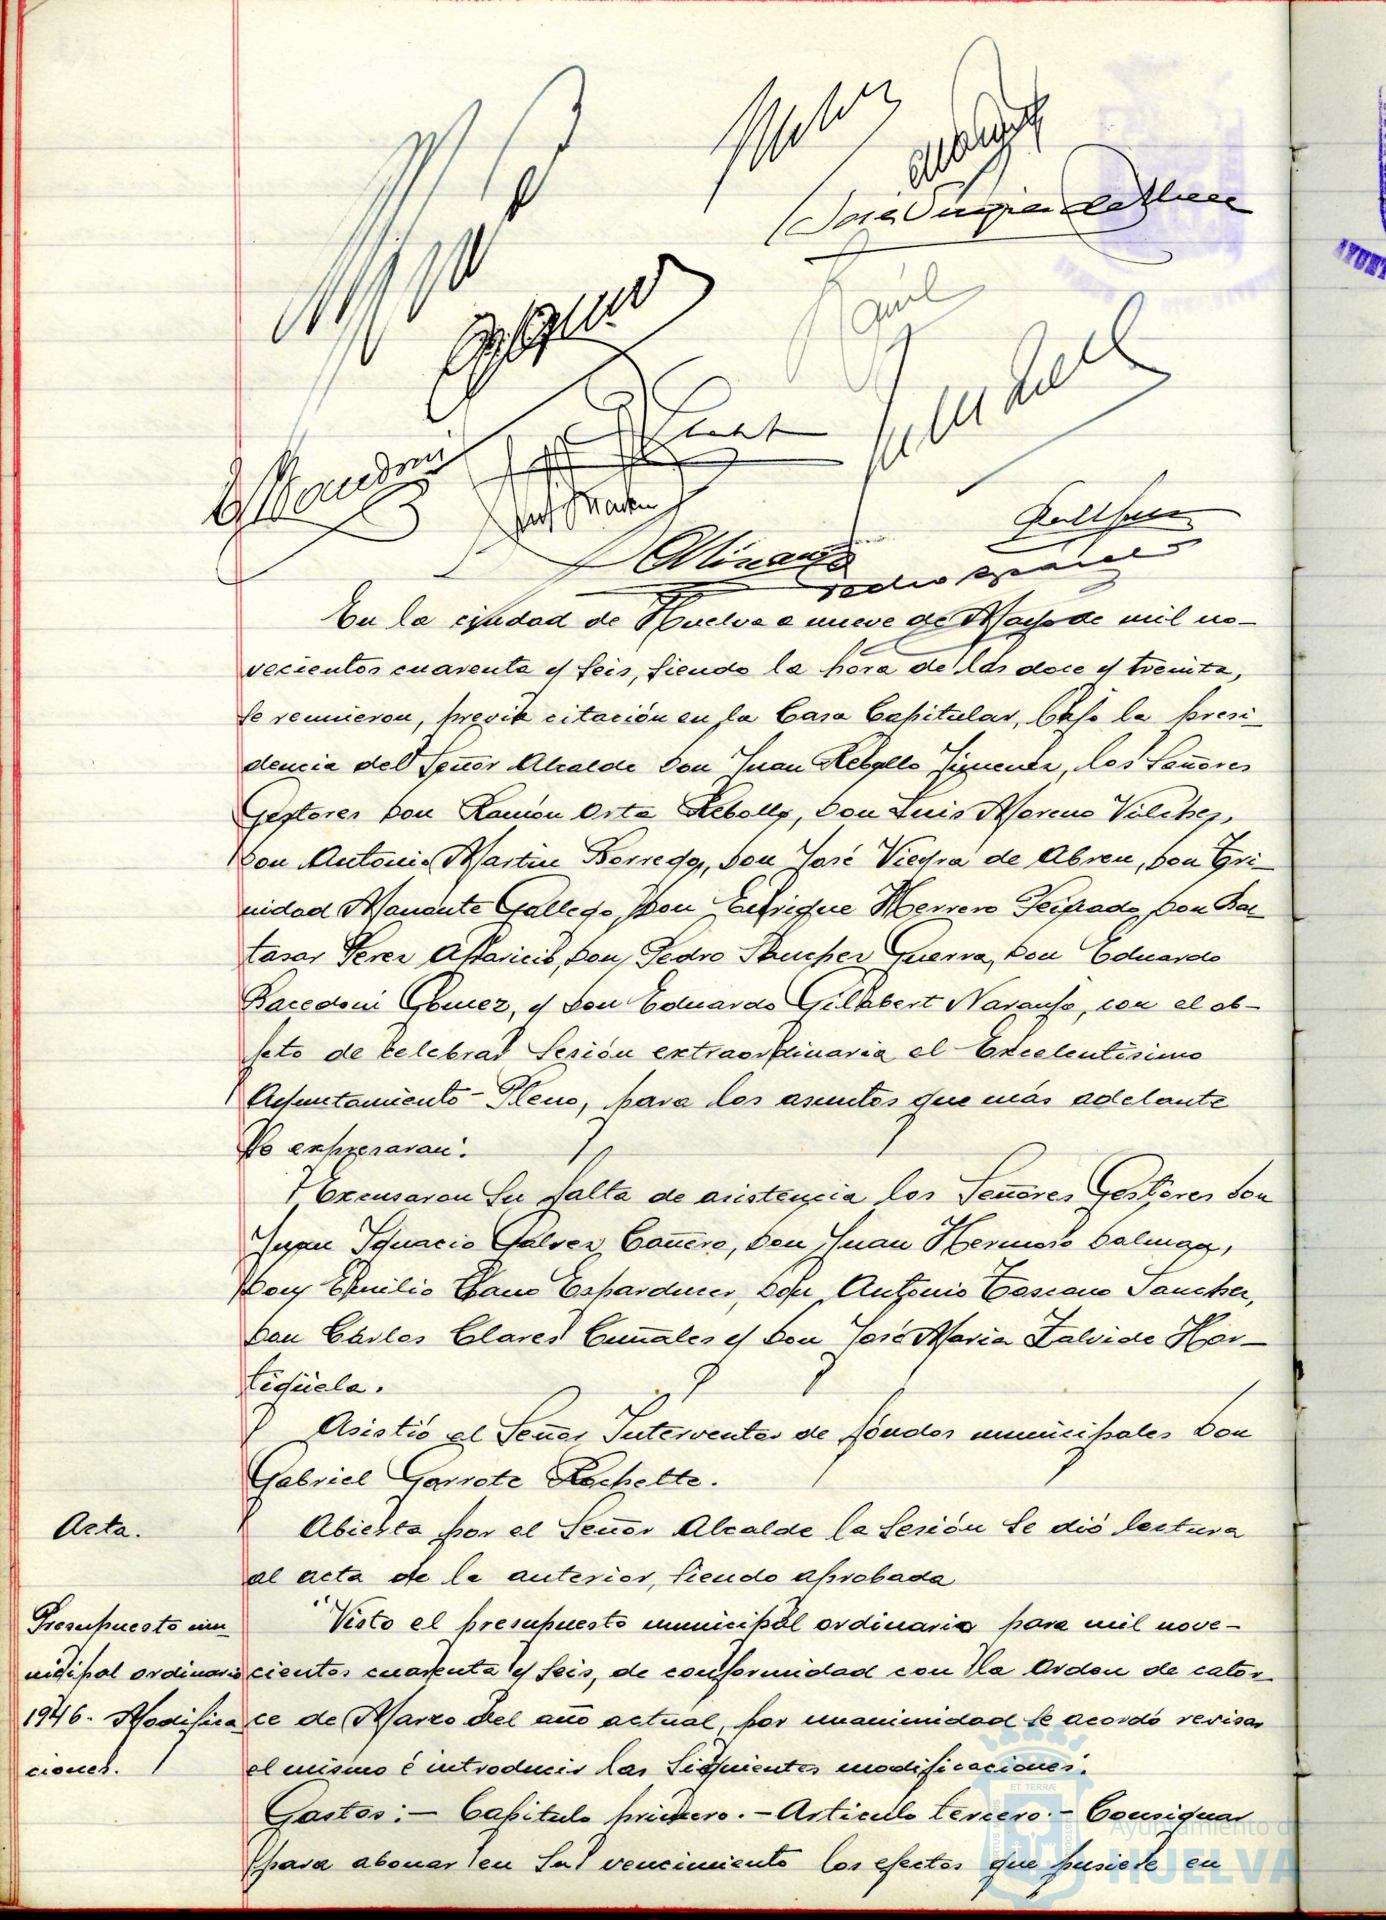 José Vieyra de Abreu
En la ciudad de Huelva a nueve de Mayo de mil no-
vecientos cuarenta y seis, siendo la hora de las doce y treinta,
se reunieron, previa citación en la Casa Capitular, bajo la presi-
dencia del Señor Alcalde Don Juan Rebollo Jimenez, los Señores
Gestores Don Ramón Orta Rebollo, Don Luis Moreno Vilchez,
Don Antonio Martin Borrego, Don José Vieyra de Abreu, Don Tri-
nidad Manante Gallego, Don Enrique Herrero Peinado, Don Bal-
tasar Perez Aparicio, Don Pedro Sanchez Guerra, Don Eduardo
Racedoni Gomez, y Don Eduardo Gilabert Naranjo, con el ob-
jeto de celebrar Sesión extraordinaria el Excelentísimo
Ayuntamiento-Pleno, para los asuntos que más adelante
se expresaran:
Excusaron su falta de asistencia los Señores Gestores Don
Juan Ignacio Galvez Cañero, Don Juan Hermoso
Don Emilio Cano Don Antonio Toscano Sanchez,
Don Carlos Clares y Don José Maria Zalvide Hor-
tigüela.
Asistió el Señor Interventor de fondos municipales Don
Gabriel Garrote Rochelte.
Acta.
Abierta por el Señor Alcalde la Sesión se dió lectura
al acta de la anterior, siendo aprobada
Presupuesto mu-
nicipal ordinario
1946. Modifica
ciones.
"Visto el presupuesto municipal ordinario para mil nove-
cientos cuarenta y seis, de conformidad con la Orden de cator-
ce de Marzo del año actual, por unanimidad se acordó revisar
el mismo é introducir las siguientes modificaciones:
Gastos:- Capitulo primero.- Articulo tercero.- Consignar
para abonar en su vencimiento los efectos que pusiese en
ET TERRÆ
Ayuntamiento de
HUELVA